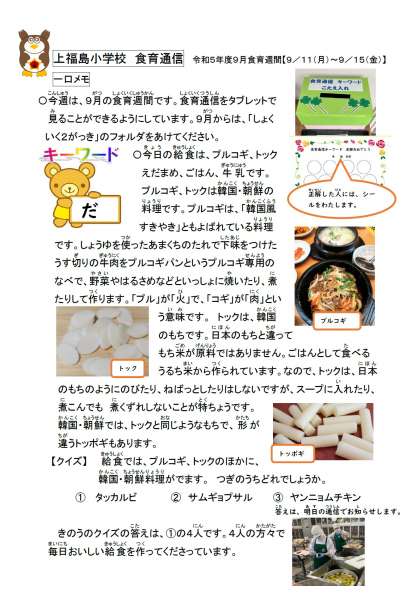 上福島小学校 食育通信 令和5年度9月食育週間【9/11(月)～9/15(金)】
一口メモ
○今週は、9月の食育週間です。食育通信をタブレットで
見ることができるようにしています。9月からは、「しょく
いく2がつき」のフォルダをあけてください。
食育通信 キーワード
こたえ入れ
正解した人には、シー
ルをわたします。
キーワード
だ
○今日の給食は、プルコギ、トック
えだまめ、ごはん、牛乳です。
プルコギ、トックは韓国・朝鮮の
料理です。プルコギは、「韓国風
すきやき」ともよばれている料理
です。しょうゆを使ったあまくちのたれで下味をつけた
うす切りの牛肉をプルコギパンというプルコギ専用の
なべで、野菜やはるさめなどといっしょに焼いたり、煮
たりして作ります。「プル」が「火」で、「コギ」が「肉」とい
う意味です。トックは、韓国
のもちです。日本のもちと違って
もち米が原料ではありません。ごはんとして食べる
うるち米から作られています。なので、トックは、日本
のもちのようにのびたり、ねばっとしたりはしないですが、スープに入れたり、
煮こんでも 煮くずれしないことが特ちょうです。
韓国・朝鮮では、トックと同じようなもちで、形が
違うトッポギもあります。
プルコギ
トック
トッポギ
【クイズ】 給食では、プルコギ、トックのほかに、
韓国・朝鮮料理がでます。 つぎのうちどれでしょうか。
① タッカルビ ② サムギョプサル ③ ヤンニョムチキン
答えは、明日の通信でお知らせします。
きのうのクイズの答えは、①の4人です。4人の方々で
毎日おいしい給食を作ってくださっています。